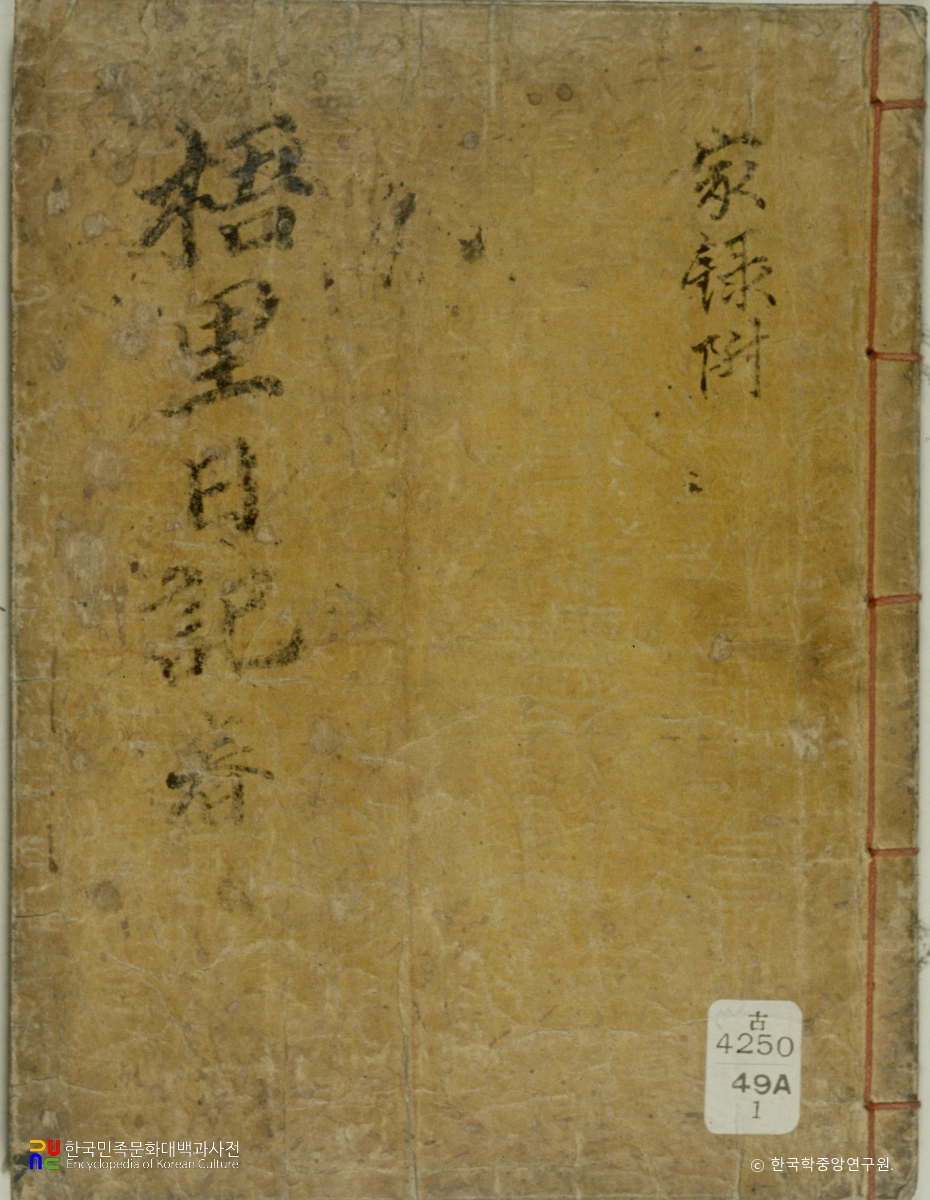 家錄附
梧里日記
古
4250
49A
1
한국민족문화대백과사전
Encyclopedia of Korean Culture
© 한국학중앙연구원